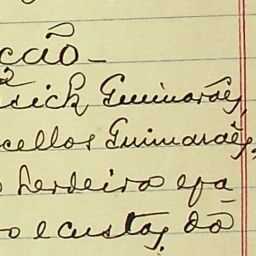 cção-
sick Guimarães,
cellos Guimarães,
herdeiro e pa
o e custas, dô